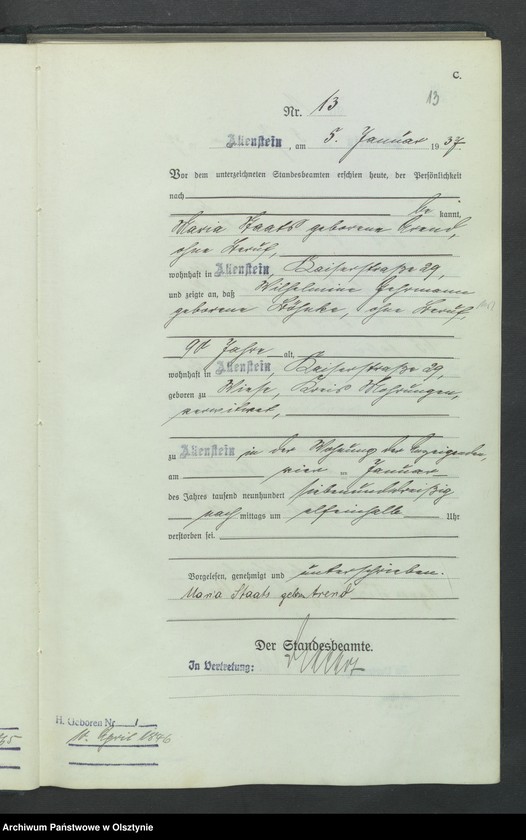 C.
13
Nr. 13
Allenstein, am 5. Januar 1937
Vor dem unterzeichneten Standesbeamten erschien heute, der Persönlichkeit
nach
be kannt,
Maria Staats geborene Arend,
ohne Beruf,
wohnhaft in Allenstein, Kaiserstraße 29,
und zeigte an, daß Wilhelmine Gehrmann
geborene Böhnke, ohne Beruf,
90 Jahre alt,
wohnhaft in Allenstein, Kaiserstraße 29,
geboren zu Wiese, Kreis Mohrungen,
verwitwet,
zu Allenstein in der Wohnung der Anzeigenden,
am vier ten Januar
des Jahres tausend neunhundert siebenunddreißig
nach mittags um elfeinhalb Uhr
verstorben sei.
Vorgelesen, genehmigt und unterschrieben.
Maria Staats geb. Arend
Der Standesbeamte.
In Vertretung:
H. Geboren Nr. 1
11. April 1846
Archiwum Państwowe w Olsztynie